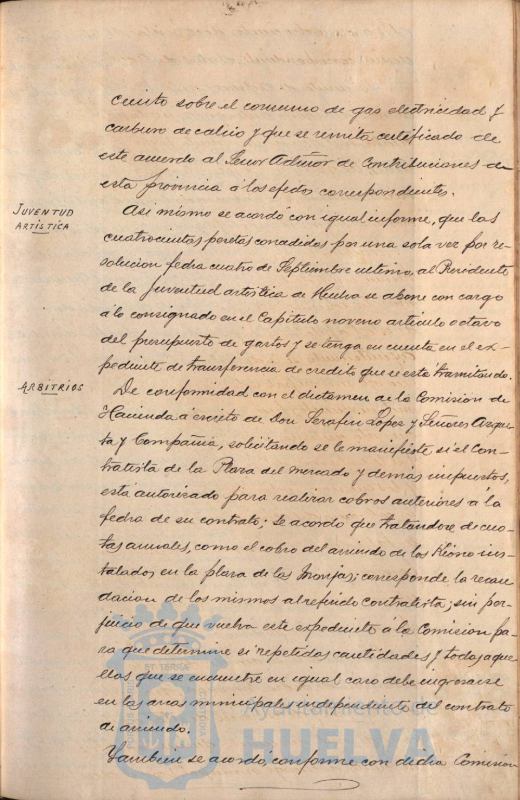 ciento sobre el consumo de gas electricidad y
carburo de calcio y que se remita certificado de
este acuerdo al Señor Admor de Contribuciones de
esta provincia á los efectos correspondientes.
JUVENTUD
ARTÍSTICA
Asi mismo se acordó con igual informe, que las
cuatrocientas pesetas concedidas por una sola vez por re-
solucion fecha cuatro de Septiembre ultimo, al Presidente
de la Juventud artistica de Huelva se abone con cargo
á lo consignado en el Capitulo noveno articulo octavo
del presupuesto de gastos y se tenga en cuenta en el ex-
pediente de transferencia de credito que se está tramitando.
ARBITRIOS
De conformidad con el dictamen de la Comision de
Hacienda á escrito de Don Serafin Lopez y Señores Azque-
ta y Compañia, solicitando se le manifieste si el Con-
tratista de la Plaza del mercado y demás impuestos,
está autorizado para realizar cobros anteriores á la
fecha de su contrato; se acordó que tratandose de cuo-
tas anuales, como el cobro del arriendo de los Kioscos ins-
talados en la plaza de las Monjas; corresponde la recau-
dacion de los mismos al referido contratista; sin per-
juicio de que vuelva este expediente á la Comision pa-
ra que determine si repetidas cantidades y todas aque-
llas que se encuentre en igual caso debe ingresarse
en las arcas municipales independiente del contrato
de arriendo.
Tambien se acordó, conforme con dicha Comision
Ayuntamiento de
HUELVA